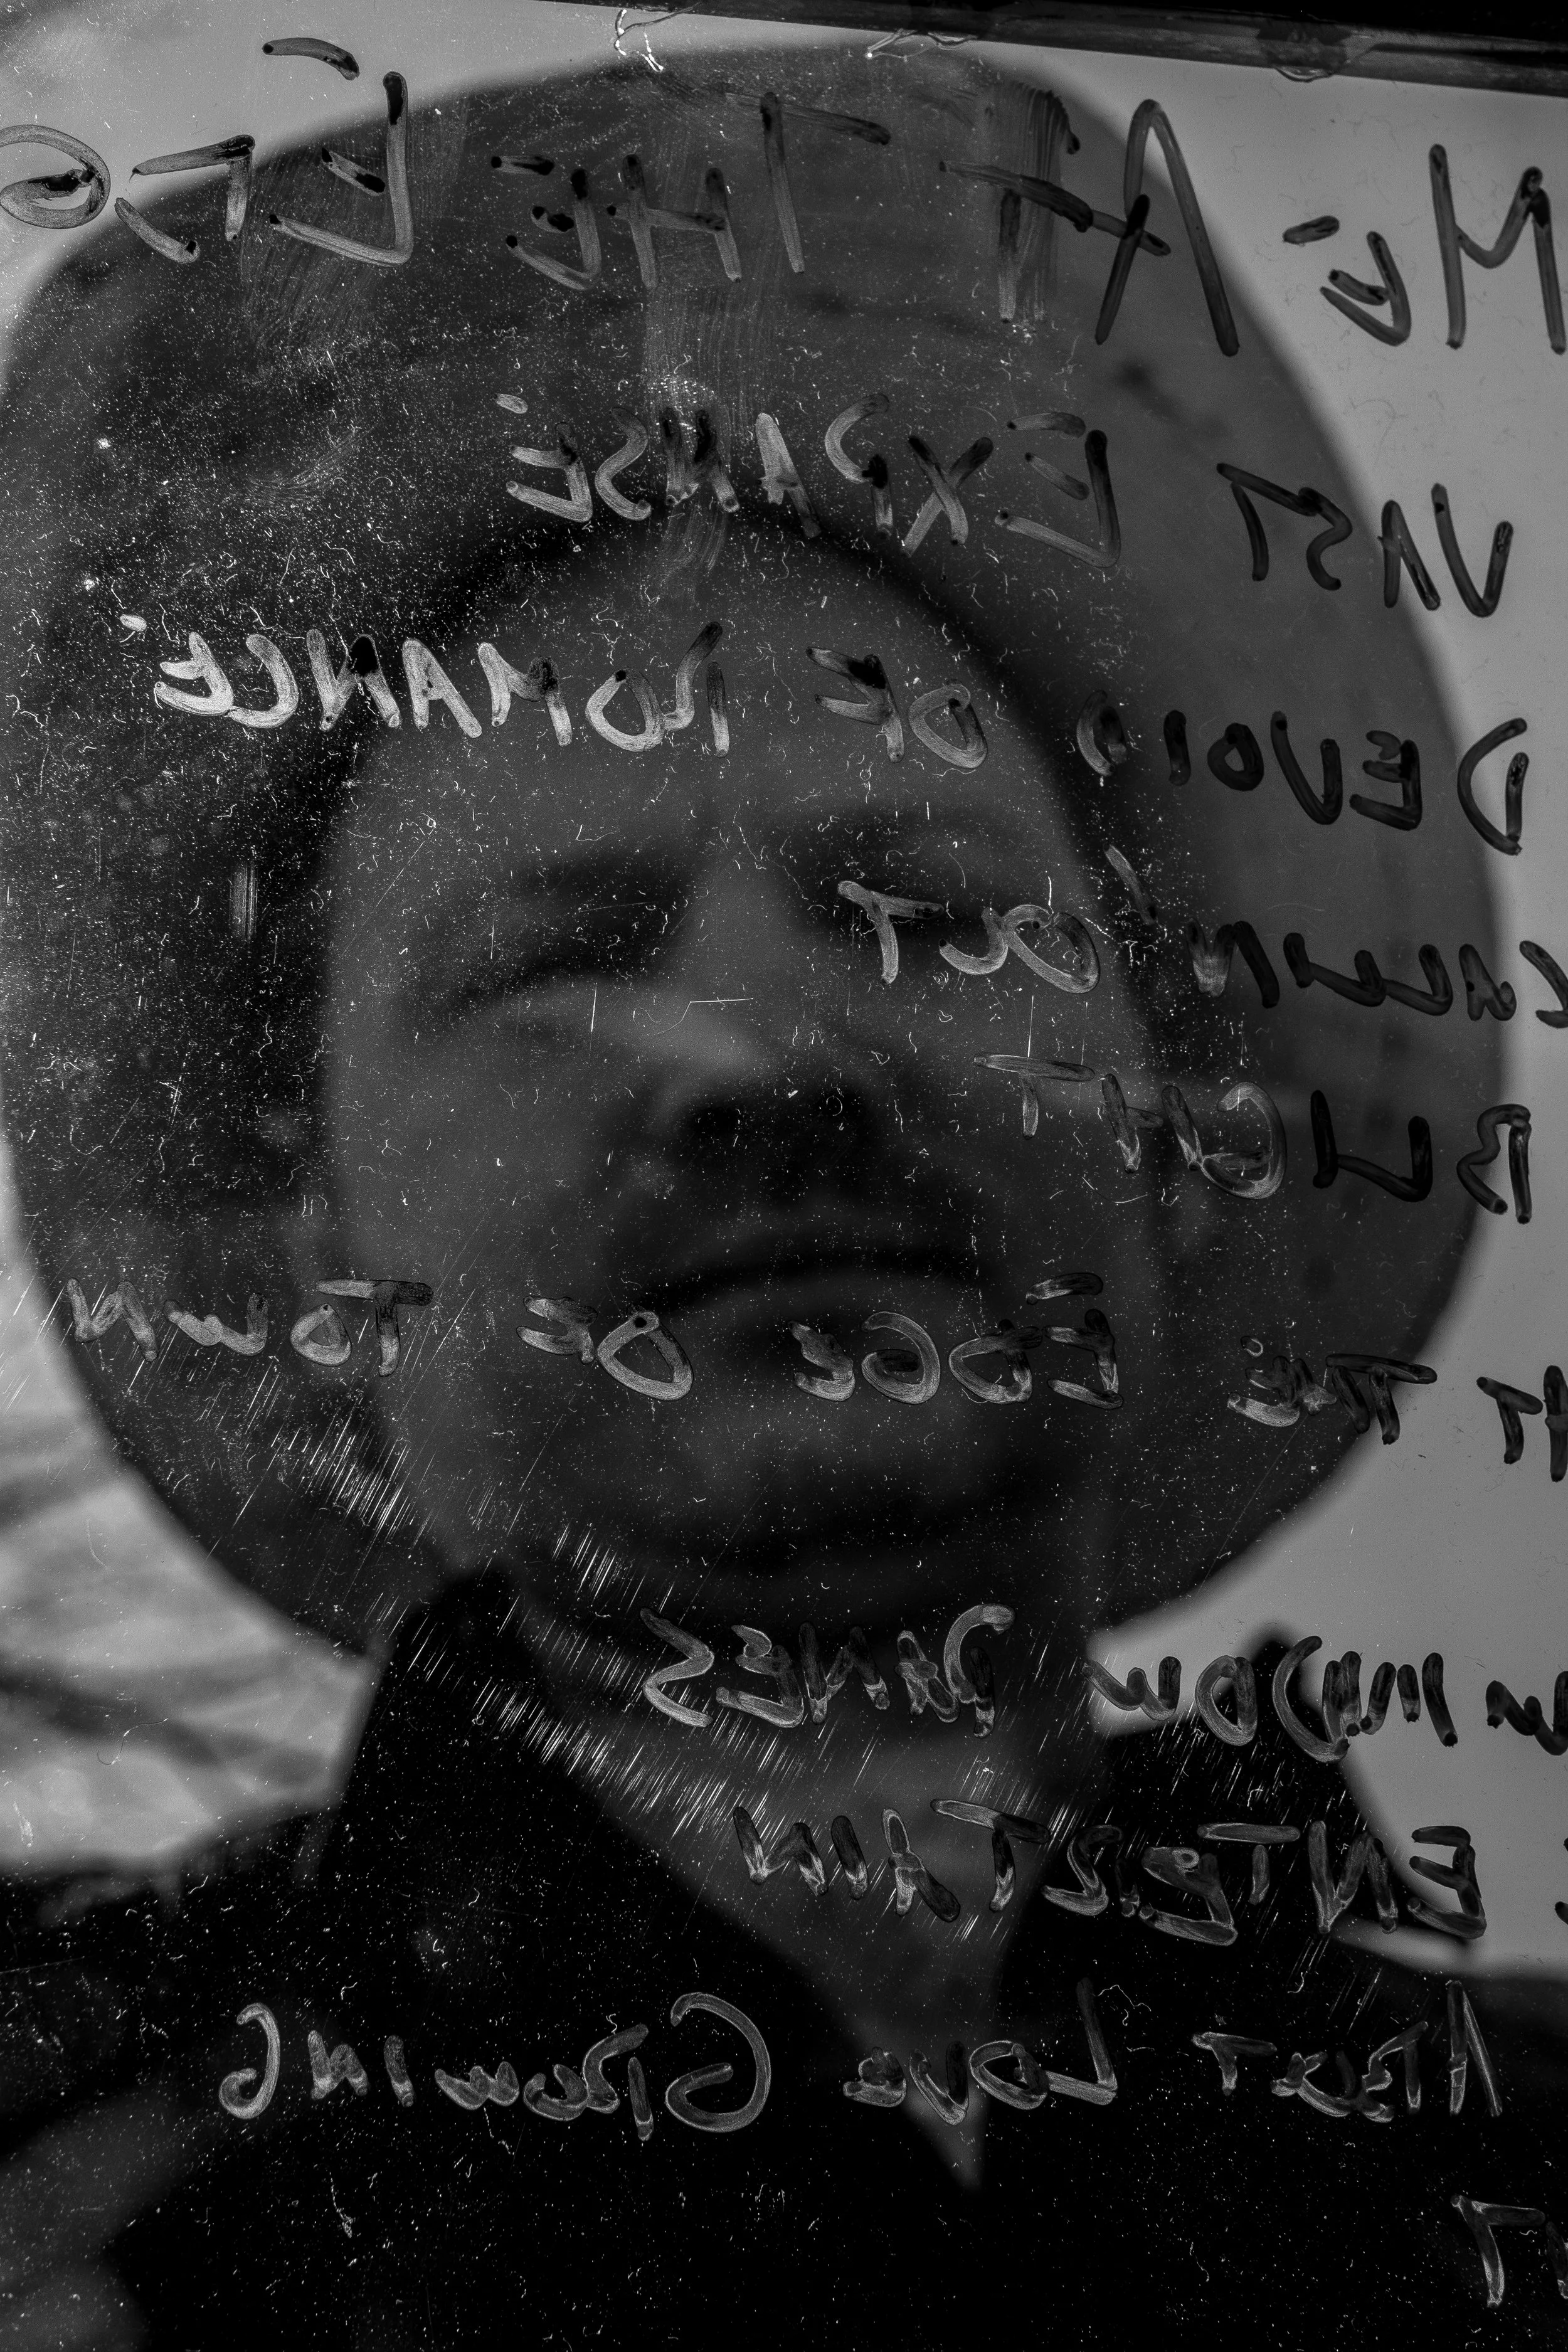 ME AT THE EDGE
VAST EXPANSE
DEVOID OF ROMANCE
OUT
BLIGHT
AT THE EDGE OF TOWN
WINDOW PANES
ENTERTAIN
ABOUT LOVE GROWING